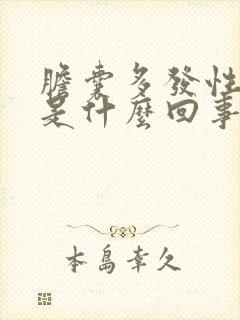 膽囊多發性
是什麼回事
本島幸久